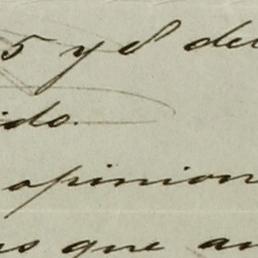 5 y 8 del
ido.
opinion
os que an